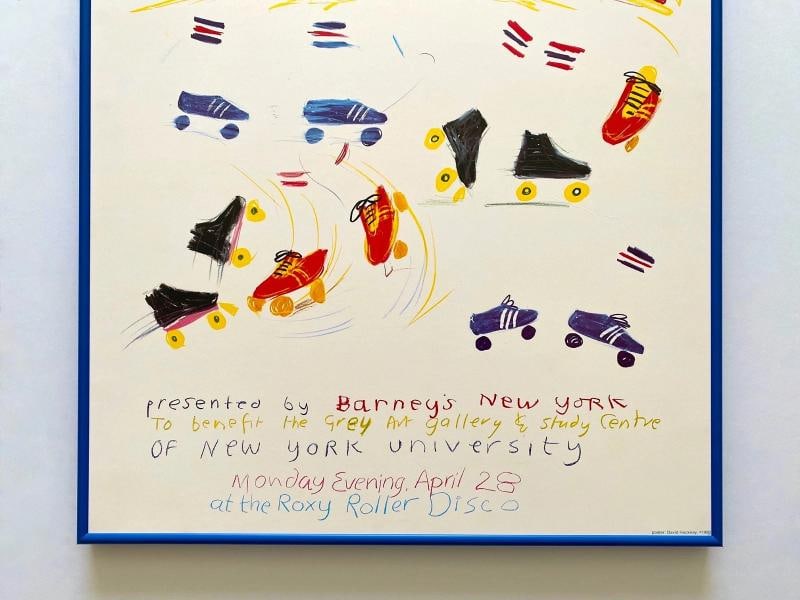 presented by Barney's NEW YORK
To benefit the Grey Art gallery & study Centre
OF NEW YORK university
Monday Evening, April 28
at the Roxy Roller Disco
poster: David Hockney,